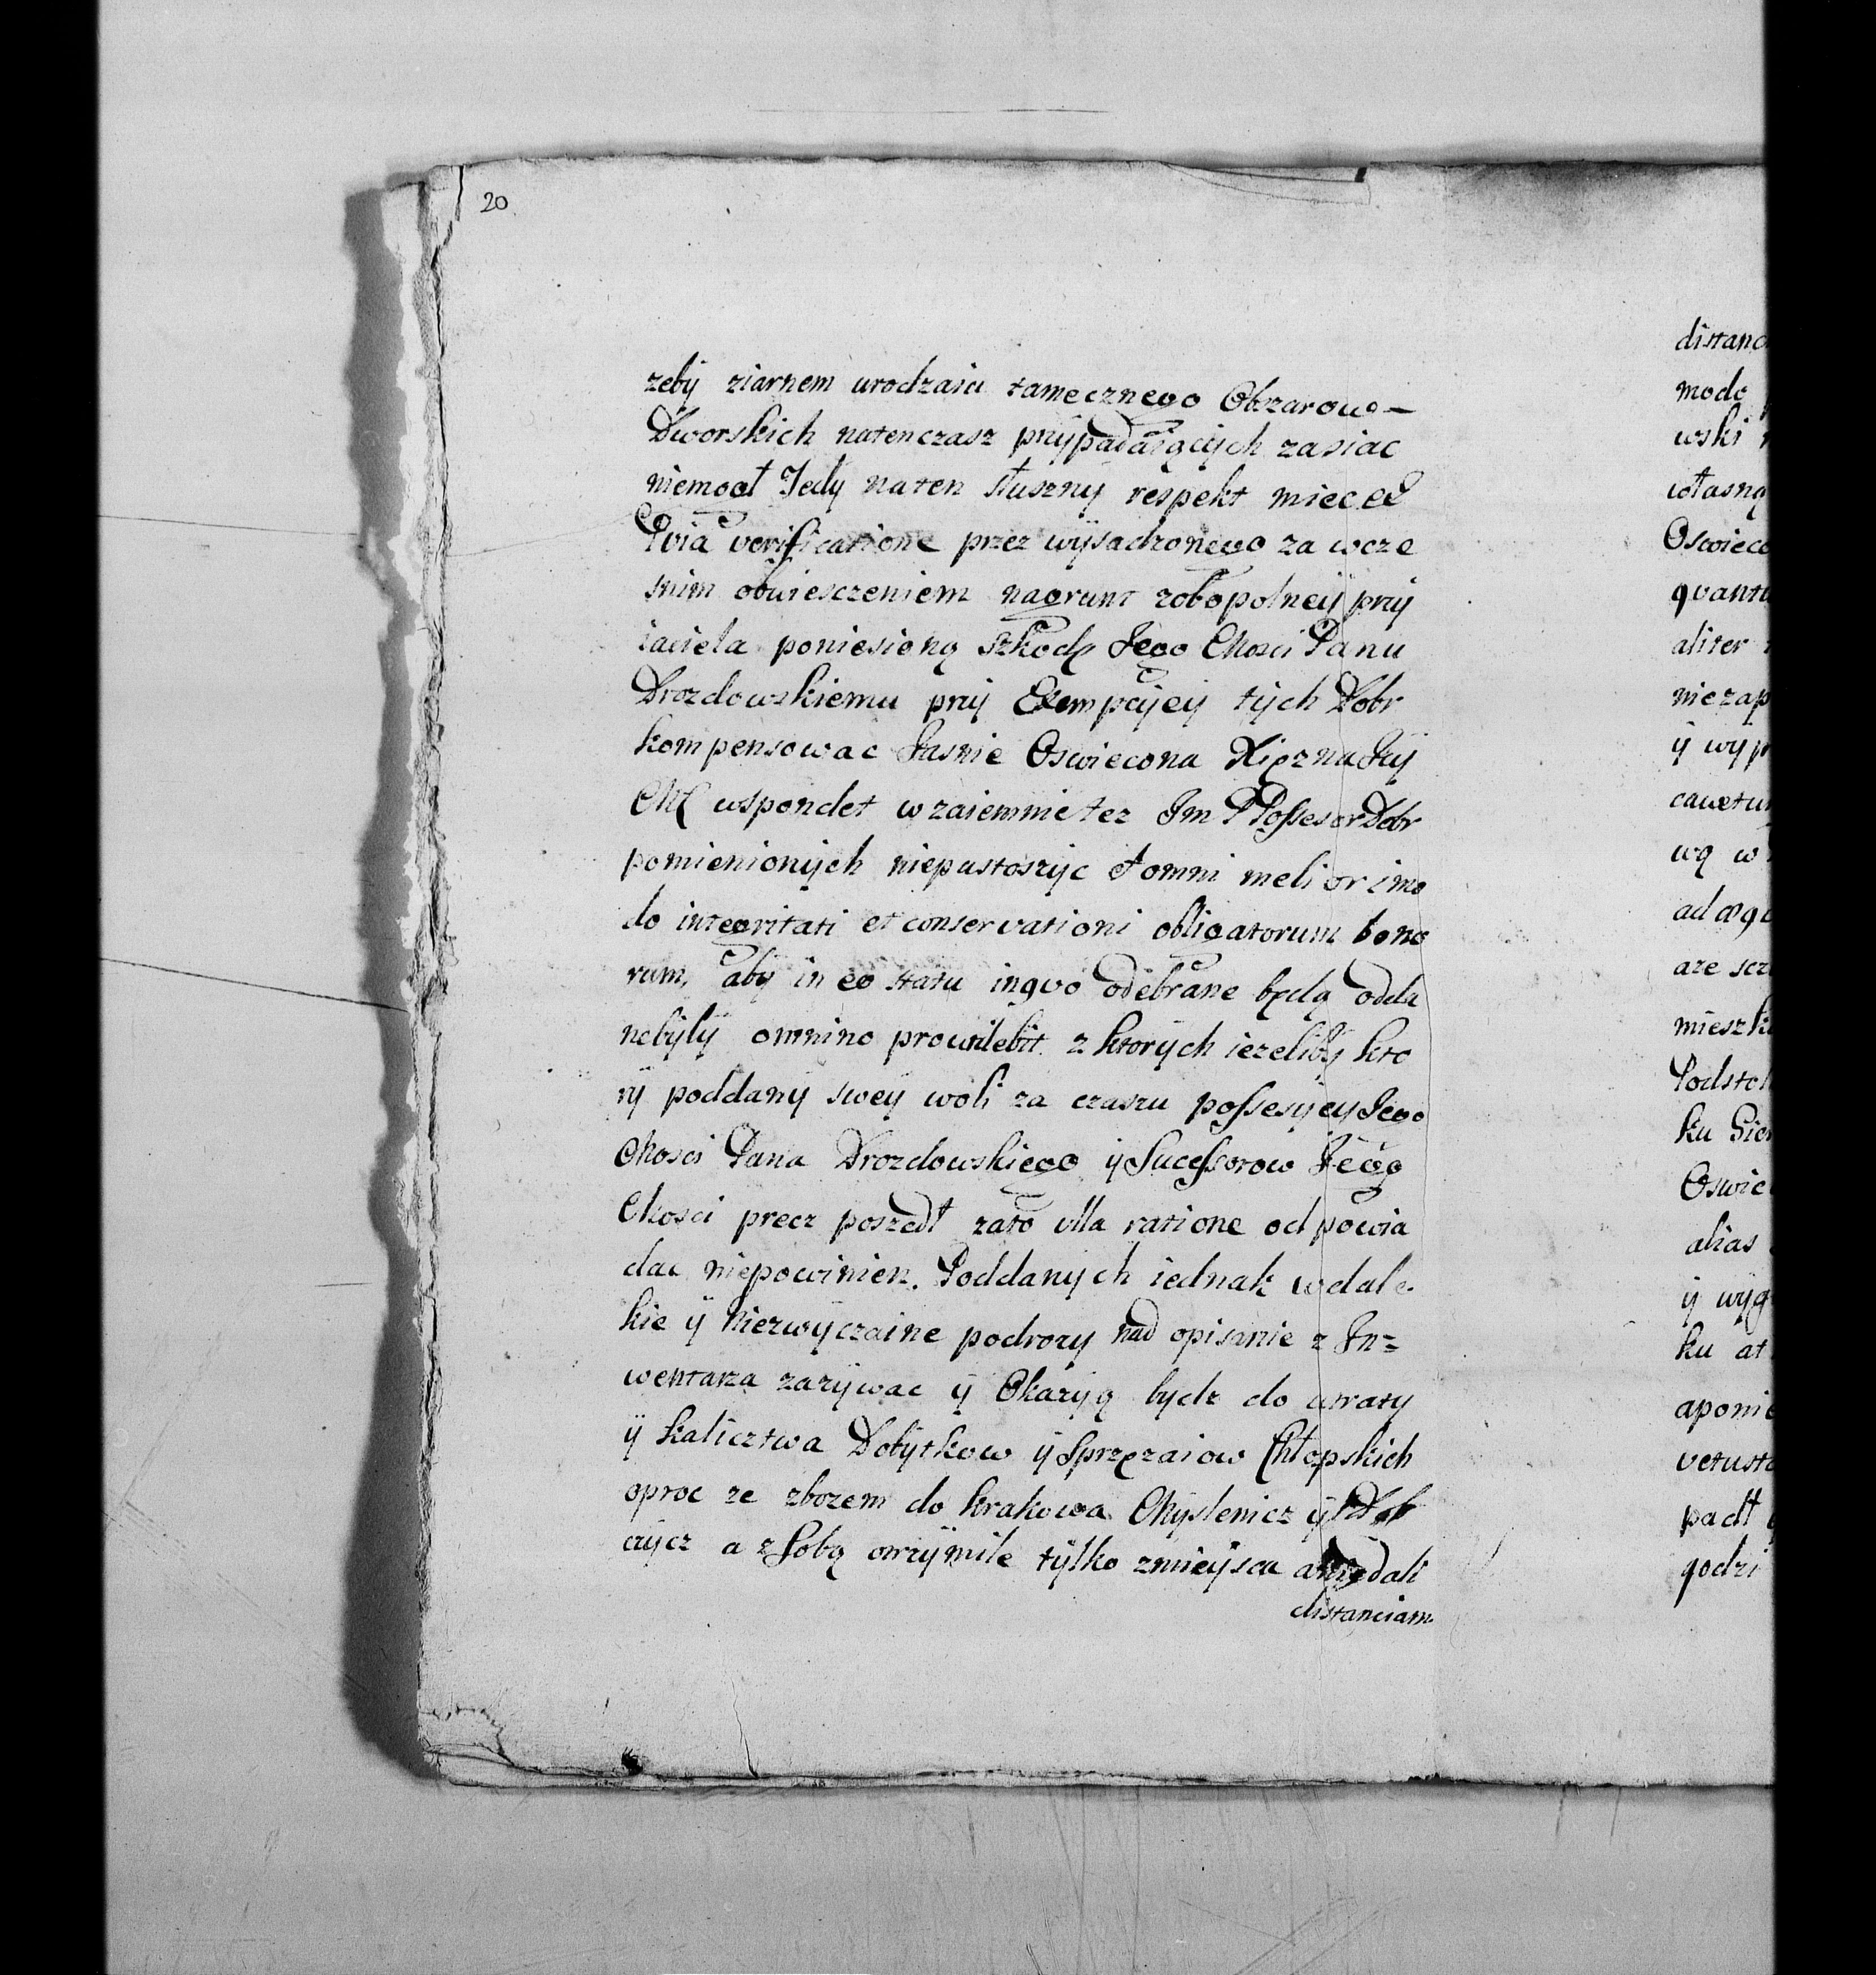 20
zeby ziarnem urodzaiu tamecznego Obzarow –
Dworskich natenczasz przypadaiących zasiac
niemogł Tedy na ten słuszny respekt miec et
Pvia verificatione przez wysadzonego za wcze
snim obwiesczeniem nagrunt zobopolney przy
iaciela poniesioną szkodę Jego Mosci Panu
Drozdowskiemu przy Exempcyey tych Dobr
kompensowac Jasnie Oswiecona Xięzna Jey
Mć wspondet wzaiemnie tez Jm P Possesor Dobr
pomienionych niepustoszyc et omni meliori mo
do integritati et conservationi obligatorum bono
rum, aby in eo statu inqvo odebrane będą odda
nebyly omnino prowidebit z ktorych iezeliby kto
ry poddany swey woli za czaszu possesyey Jego
Mosci Pana Drozdowskiego y Sucessorow Jego
Mosci precz poszedł zato vlla ratione odpowia
dac niepowinien. Poddanych iednak w dale
kie y niezwyczaine podrozy nad opisanie z In=
wentarza zazywac y Okazyą bydz do utraty
y kalicztwa Dobytkow y Sprzęzaiow Chłopskich
oproc ze zbozem do Krakowa Myslenicz y Dob
czycz a z Sobą omzymile tylko zmieysca a dali
distanciam
distanc
modo
wski
własną
Oswieco
qvantu
aliter
niezap
y wyp
cavetur
wą w
ad æqv
are scr
mieszk
Podstol
ku Sier
Oswie
alias
y wyg
ku at
aponie
vetusta
padł
godzi